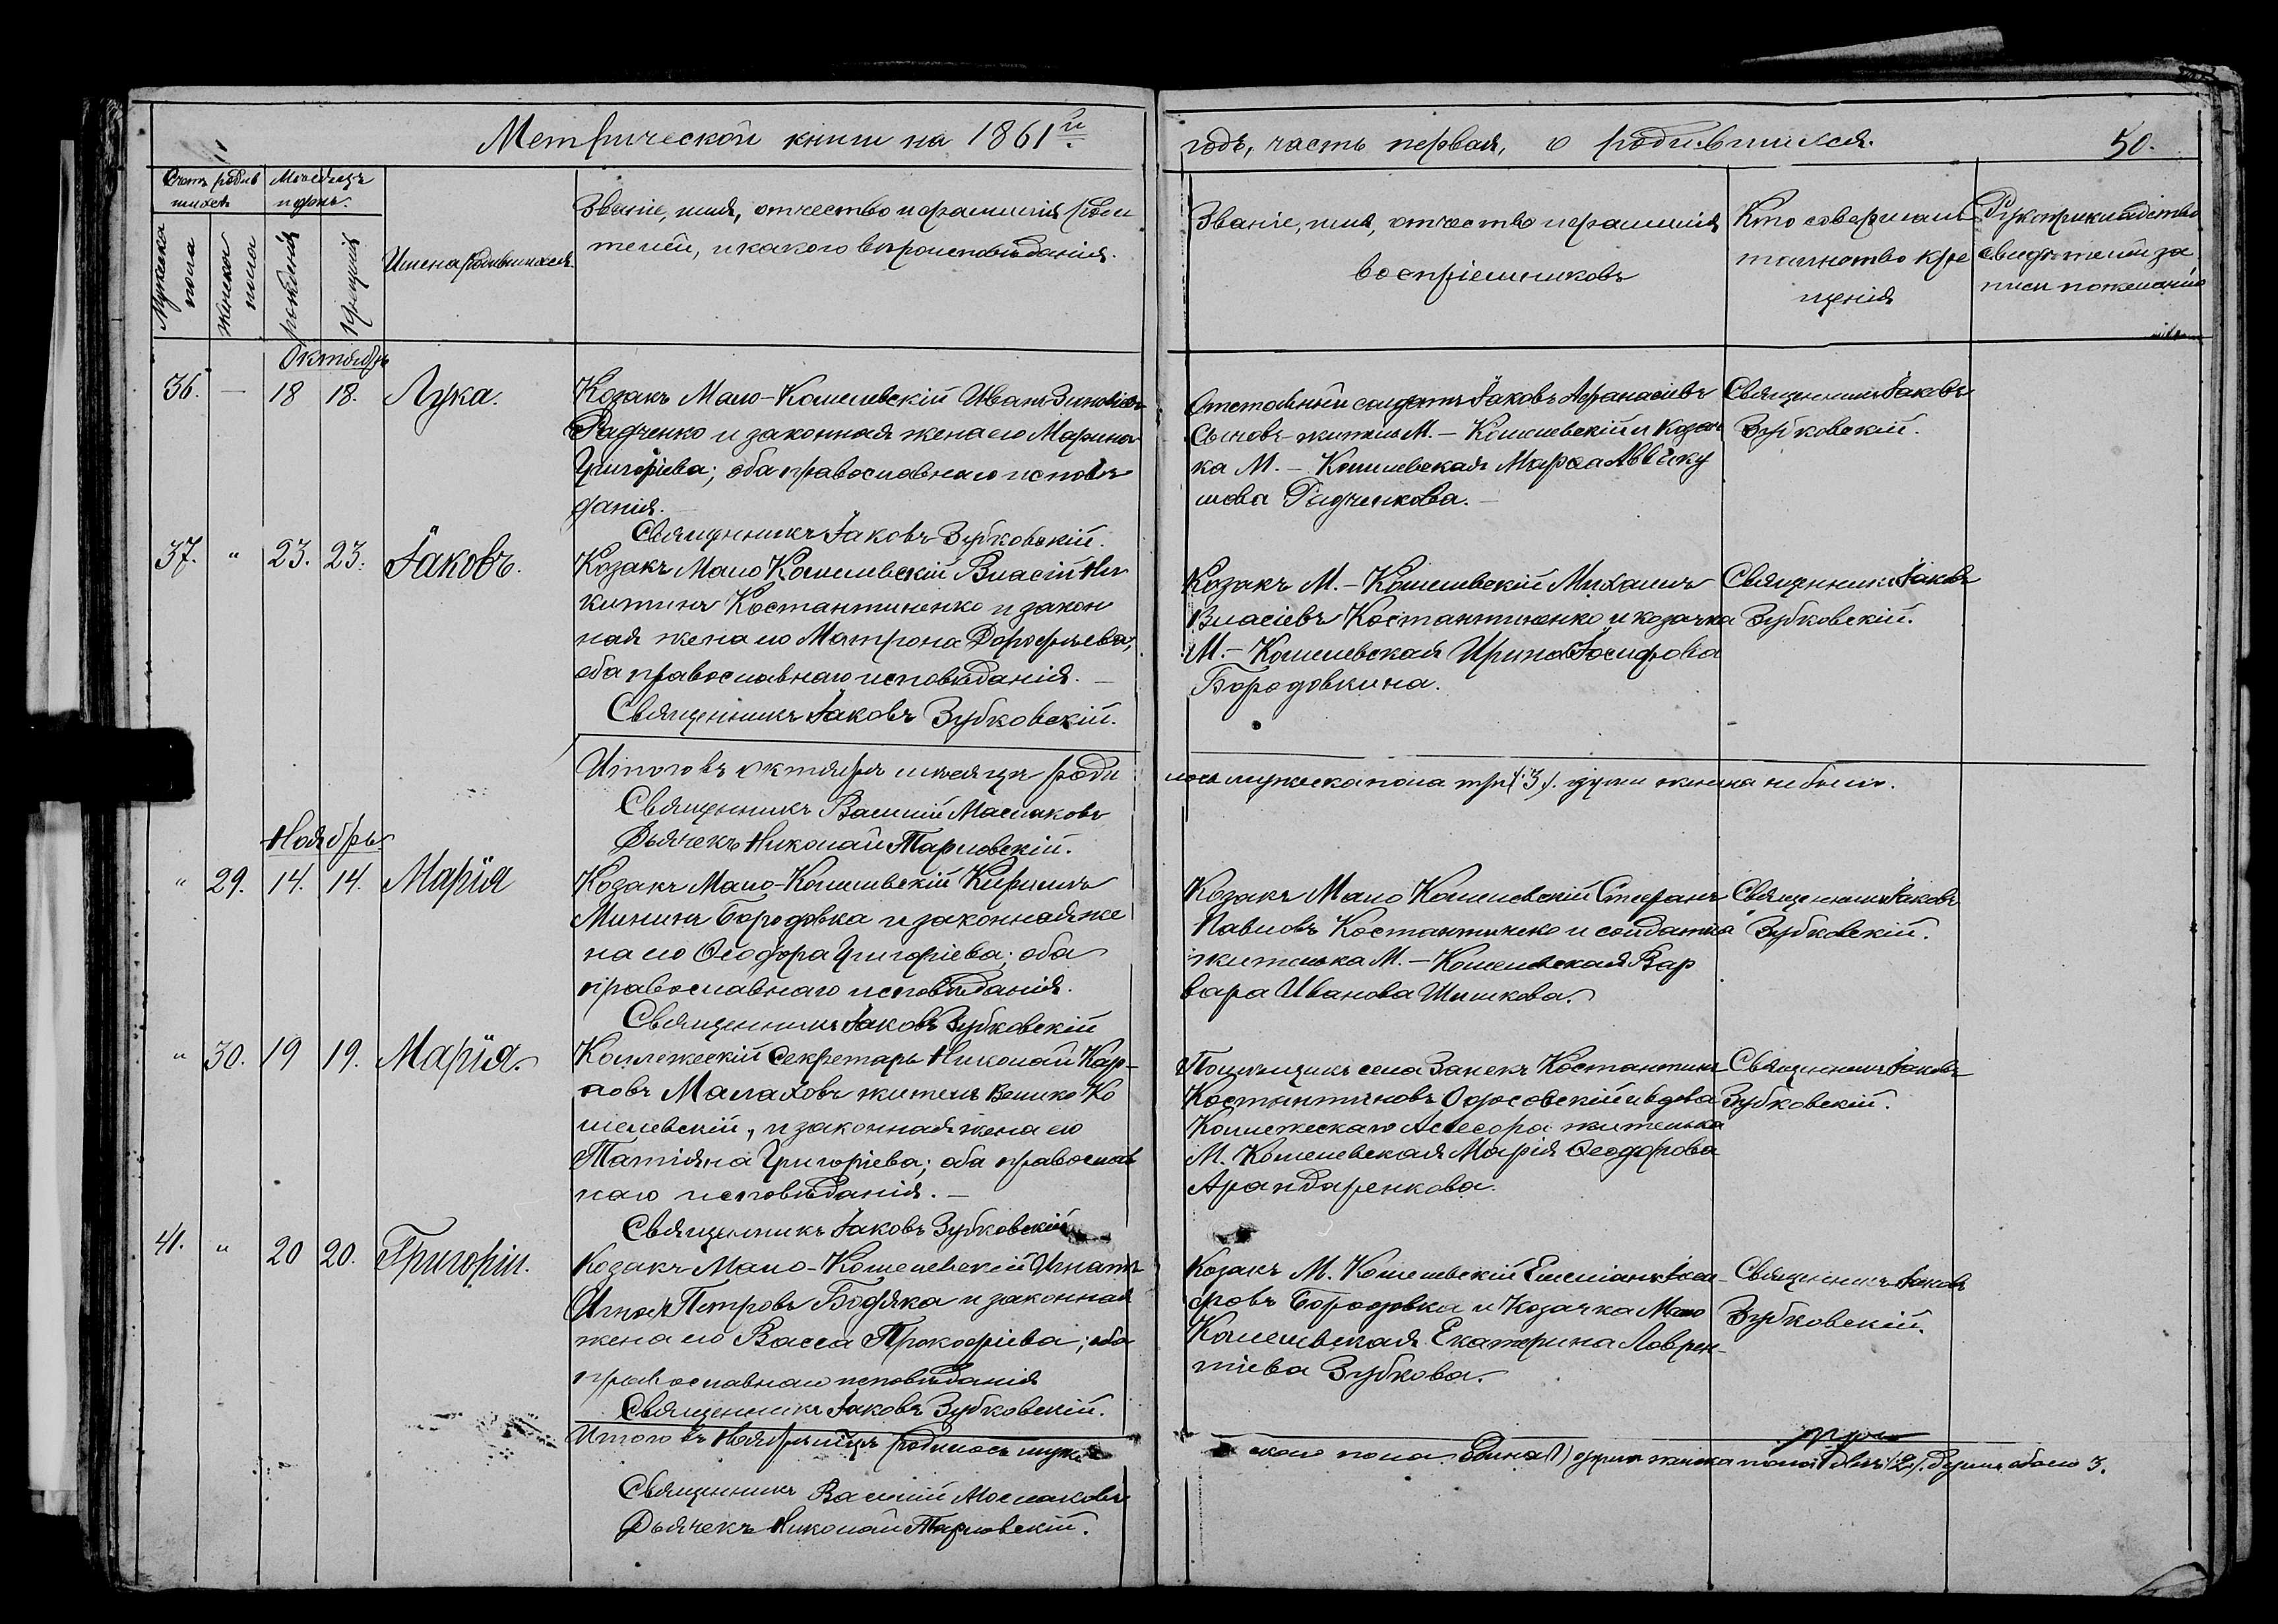 Метрической книги на 1861й
годъ, часть первая, о родившихся.
50.
Счетъ родив
шихся
Мѣсяцъ
и день.
Мужеска
пола
Женска
пола
рожденія
крещенія
Имена родившихся.
Званіе, имя, отчество и фамилія роди
телей, и какого вѣроисповѣданія.
Званіе, имя, отчество и фамилія
воспріемниковъ
Кто совершалъ
таинство кре
щенія
Рукоприкладство
свидѣтелей за
писи по желанію
Октябрь
36. — 18 18. Лука.
Козакъ Мало-Кошелевскій Иванъ Зиновіевъ
Радченко и законная жена его Марина
Григоріева; оба православнаго исповѣ
данія.
Священникъ Іаковъ Зубковскій.
Отставный солдатъ Іаковъ Афанасіевъ
Сычовъ житель М.-Кошелевскій и козач
ка М.-Кошелевская Марфа Аввaку
мова Радченкова.
Священникъ Іаковъ
Зубковскій.
37. " 23. 23. Іаковъ.
Козакъ Мало Кошелевскій Власій Ни
китинъ Костантиненко и закон
ная жена его Матрона Дорофѣева;
оба православнаго исповѣданія.
Священникъ Іаковъ Зубковскій.
Козакъ М.-Кошелевскій Михаилъ
Власіевъ Костантиненко и козачка
М.-Кошелевская Ирина Іосифова
Бородовкина.
Священникъ Іаковъ
Зубковскій.
Итого въ октябрѣ мѣсяцѣ роди
лось мужеска пола три (:3:). души женска не было.
Священникъ Василій Маслаковъ
Дьячекъ Николай Тарловскій.
Ноябрь
" 29. 14. 14. Марія
Козакъ Мало-Кошелевскій Кириллъ
Мининъ Бородовка и законная же
на его Ѳеодора Григоріева; оба
православнаго исповѣданія.
Священникъ Іаковъ Зубковскій
Козакъ Мало Кошелевскій Стефанъ
Павловъ Костантиненко и солдатка
жителька М.-Кошелевская Вар
вара Иванова Шишкова.
Священникъ Іаковъ
Зубковскій.
" 30. 19 19. Марія.
Коллежескій Секретарь Николай Кар-
повъ Малаховъ житель Велико Ко
шелевскій, и законная жена его
Татіяна Григоріева; оба православ
наго исповѣданія.
Священникъ Іаковъ Зубковскій
Помѣщикъ села Занекъ Костантинъ
Костантиновъ Офросовскій и вдова
Коллежескаго Ассесора жителька
М. Кошелевская Марія Ѳеодорова
Арандаренкова.
Священникъ Іаковъ
Зубковскій.
41. " 20 20. Григорій.
Козакъ Мало-Кошелевскій Игнатъ
Петровъ Бодяка и законная
жена его Васса Прокофіева; оба
православнаго исповѣданія
Священникъ Іаковъ Зубковскій.
Козакъ М. Кошелевскій Емеліанъ
Бородовка и Козачка Мало
Кошелевская Екатерина Лаврен-
тіева Зубкова.
Священникъ Іаковъ
Зубковскій.
Итого въ Ноябрѣ мѣсяцѣ родилось муже
скаго пола Едина (1) душа женска пола двѣ (:2:). души обоего 3.
Священникъ Василій Маслаковъ
Дьячекъ Николай Тарловскій.